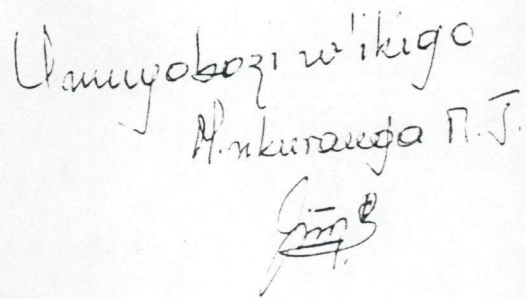 Umuyobozi w'ikigo
M.nkuranga M. J.